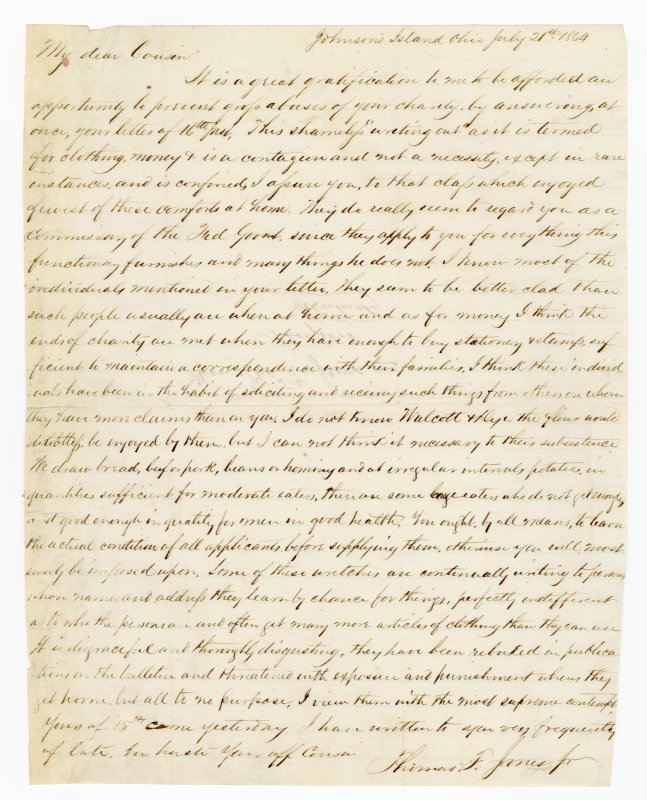 Johnson's Island Ohio July 21st 1864
My dear Cousin
It is a great gratification to me to be afforded an
opportunity to prevent gross abuses of your charity by answering, at
once, your letter of 16th Inst. This shameless "writing out" as it is termed
for clothing, money & is a contagion and not a necessity, except in rare
instances, and is confined, I assure you, to that class which enjoyed
fewest of these comforts at home. They do really seem to regard you as a
Commissary of the Fed Govmt, since they apply to you for everything this
functionary furnishes and many things he does not. I know most of the
individuals mentioned in your letter. They seem to be better clad than
such people usually are when at home and as for money I think the
ends of charity are met when they have enough to buy stationery & stamps suf
ficient to maintain a correspondence with their families. I think these individ
uals have been in the habit of soliciting and receiving such things from others on whom
they have more claims than on you. I do not know Walcott & the flour would
doubtless be enjoyed by them but I can not think it necessary to their subsistence
We draw bread, beef or pork, beans or hominy and at irregular intervals potatoes, in
quantities sufficient for moderate eaters, there are some large eaters who do not get enough,
and good enough in quality for men in good health. You ought, by all means, to learn
the actual condition of all applicants before supplying them, otherwise you will most
surely be imposed upon. Some of these wretches are continually writing to persons
whose name and address they learn by chance for things, perfectly indifferent
as to who the persons are and often get many more articles of clothing than they can use
It is disgraceful and thoroughly disgusting, they have been rebuked in publica
tions on the bulletin and threatened with exposure and punishment when they
get home, but all to no purpose. I view them with the most supreme contempt
Yours of 15th came yesterday I have written to you very frequently
of late. In haste Your aff Cousin
Thomas. F. Jones Jr